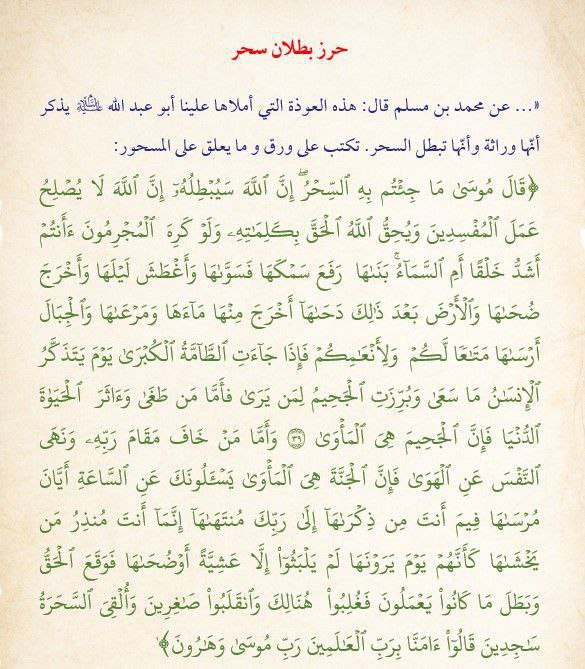 حرز بطلان سحر
«... عن محمد بن مسلم قال: هذه العوذة التي أملاها علينا أبو عبد الله عليه السلام يذكر
أنّها وراثة وأنّها تبطل السحر. تكتب على ورق و ما يعلق على المسحور:
﴿قَالَ مُوسَىٰ مَا جِئْتُم بِهِ ٱلسِّحْرُۖ إِنَّ ٱللَّهَ سَيُبْطِلُهُۥٓ إِنَّ ٱللَّهَ لَا يُصْلِحُ
عَمَلَ ٱلْمُفْسِدِينَ وَيُحِقُّ ٱللَّهُ ٱلْحَقَّ بِكَلِمَـٰتِهِۦ وَلَوْ كَرِهَ ٱلْمُجْرِمُونَ ءَأَنتُمْ
أَشَدُّ خَلْقًا أَمِ ٱلسَّمَآءُۚ بَنَىٰهَا رَفَعَ سَمْكَهَا فَسَوَّىٰهَا وَأَغْطَشَ لَيْلَهَا وَأَخْرَجَ
ضُحَىٰهَا وَٱلْأَرْضَ بَعْدَ ذَٰلِكَ دَحَىٰهَآ أَخْرَجَ مِنْهَا مَآءَهَا وَمَرْعَىٰهَا وَٱلْجِبَالَ
أَرْسَىٰهَا مَتَـٰعًا لَّكُمْ وَلِأَنْعَـٰمِكُمْ فَإِذَا جَآءَتِ ٱلطَّآمَّةُ ٱلْكُبْرَىٰ يَوْمَ يَتَذَكَّرُ
ٱلْإِنسَـٰنُ مَا سَعَىٰ وَبُرِّزَتِ ٱلْجَحِيمُ لِمَن يَرَىٰ فَأَمَّا مَن طَغَىٰ وَءَاثَرَ ٱلْحَيَوٰةَ
ٱلدُّنْيَا فَإِنَّ ٱلْجَحِيمَ هِىَ ٱلْمَأْوَىٰ ۝٣٩ وَأَمَّا مَنْ خَافَ مَقَامَ رَبِّهِۦ وَنَهَى
ٱلنَّفْسَ عَنِ ٱلْهَوَىٰ فَإِنَّ ٱلْجَنَّةَ هِىَ ٱلْمَأْوَىٰ يَسْـَٔلُونَكَ عَنِ ٱلسَّاعَةِ أَيَّانَ
مُرْسَىٰهَا فِيمَ أَنتَ مِن ذِكْرَىٰهَآ إِلَىٰ رَبِّكَ مُنتَهَىٰهَآ إِنَّمَآ أَنتَ مُنذِرُ مَن
يَخْشَىٰهَا كَأَنَّهُمْ يَوْمَ يَرَوْنَهَا لَمْ يَلْبَثُوٓا۟ إِلَّا عَشِيَّةً أَوْ ضُحَىٰهَا فَوَقَعَ ٱلْحَقُّ
وَبَطَلَ مَا كَانُوا۟ يَعْمَلُونَ فَغُلِبُوا۟ هُنَالِكَ وَٱنقَلَبُوا۟ صَـٰغِرِينَ وَأُلْقِىَ ٱلسَّحَرَةُ
سَـٰجِدِينَ قَالُوٓا۟ ءَامَنَّا بِرَبِّ ٱلْعَـٰلَمِينَ رَبِّ مُوسَىٰ وَهَـٰرُونَ﴾